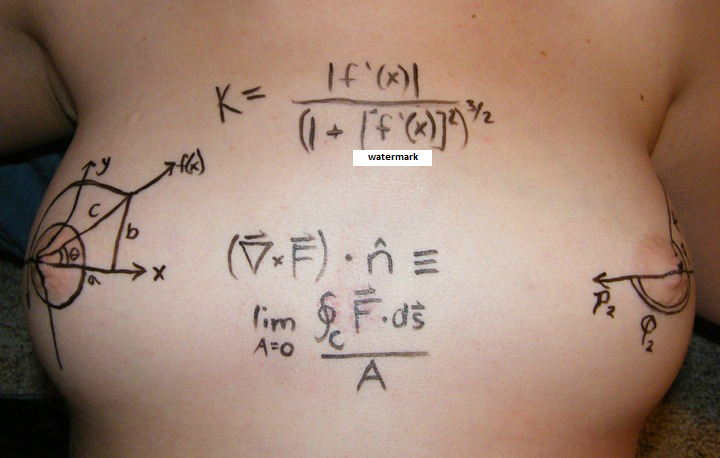 K = |f'(x)| / (1 + [f'(x)]²)^3/2
watermark
y
f(x)
c
b
θ
a
x
(∇⃗ × F⃗) · n̂ ≡
lim A=0 ∮_C F⃗ · ds⃗ / A
P⃗₂
φ₂